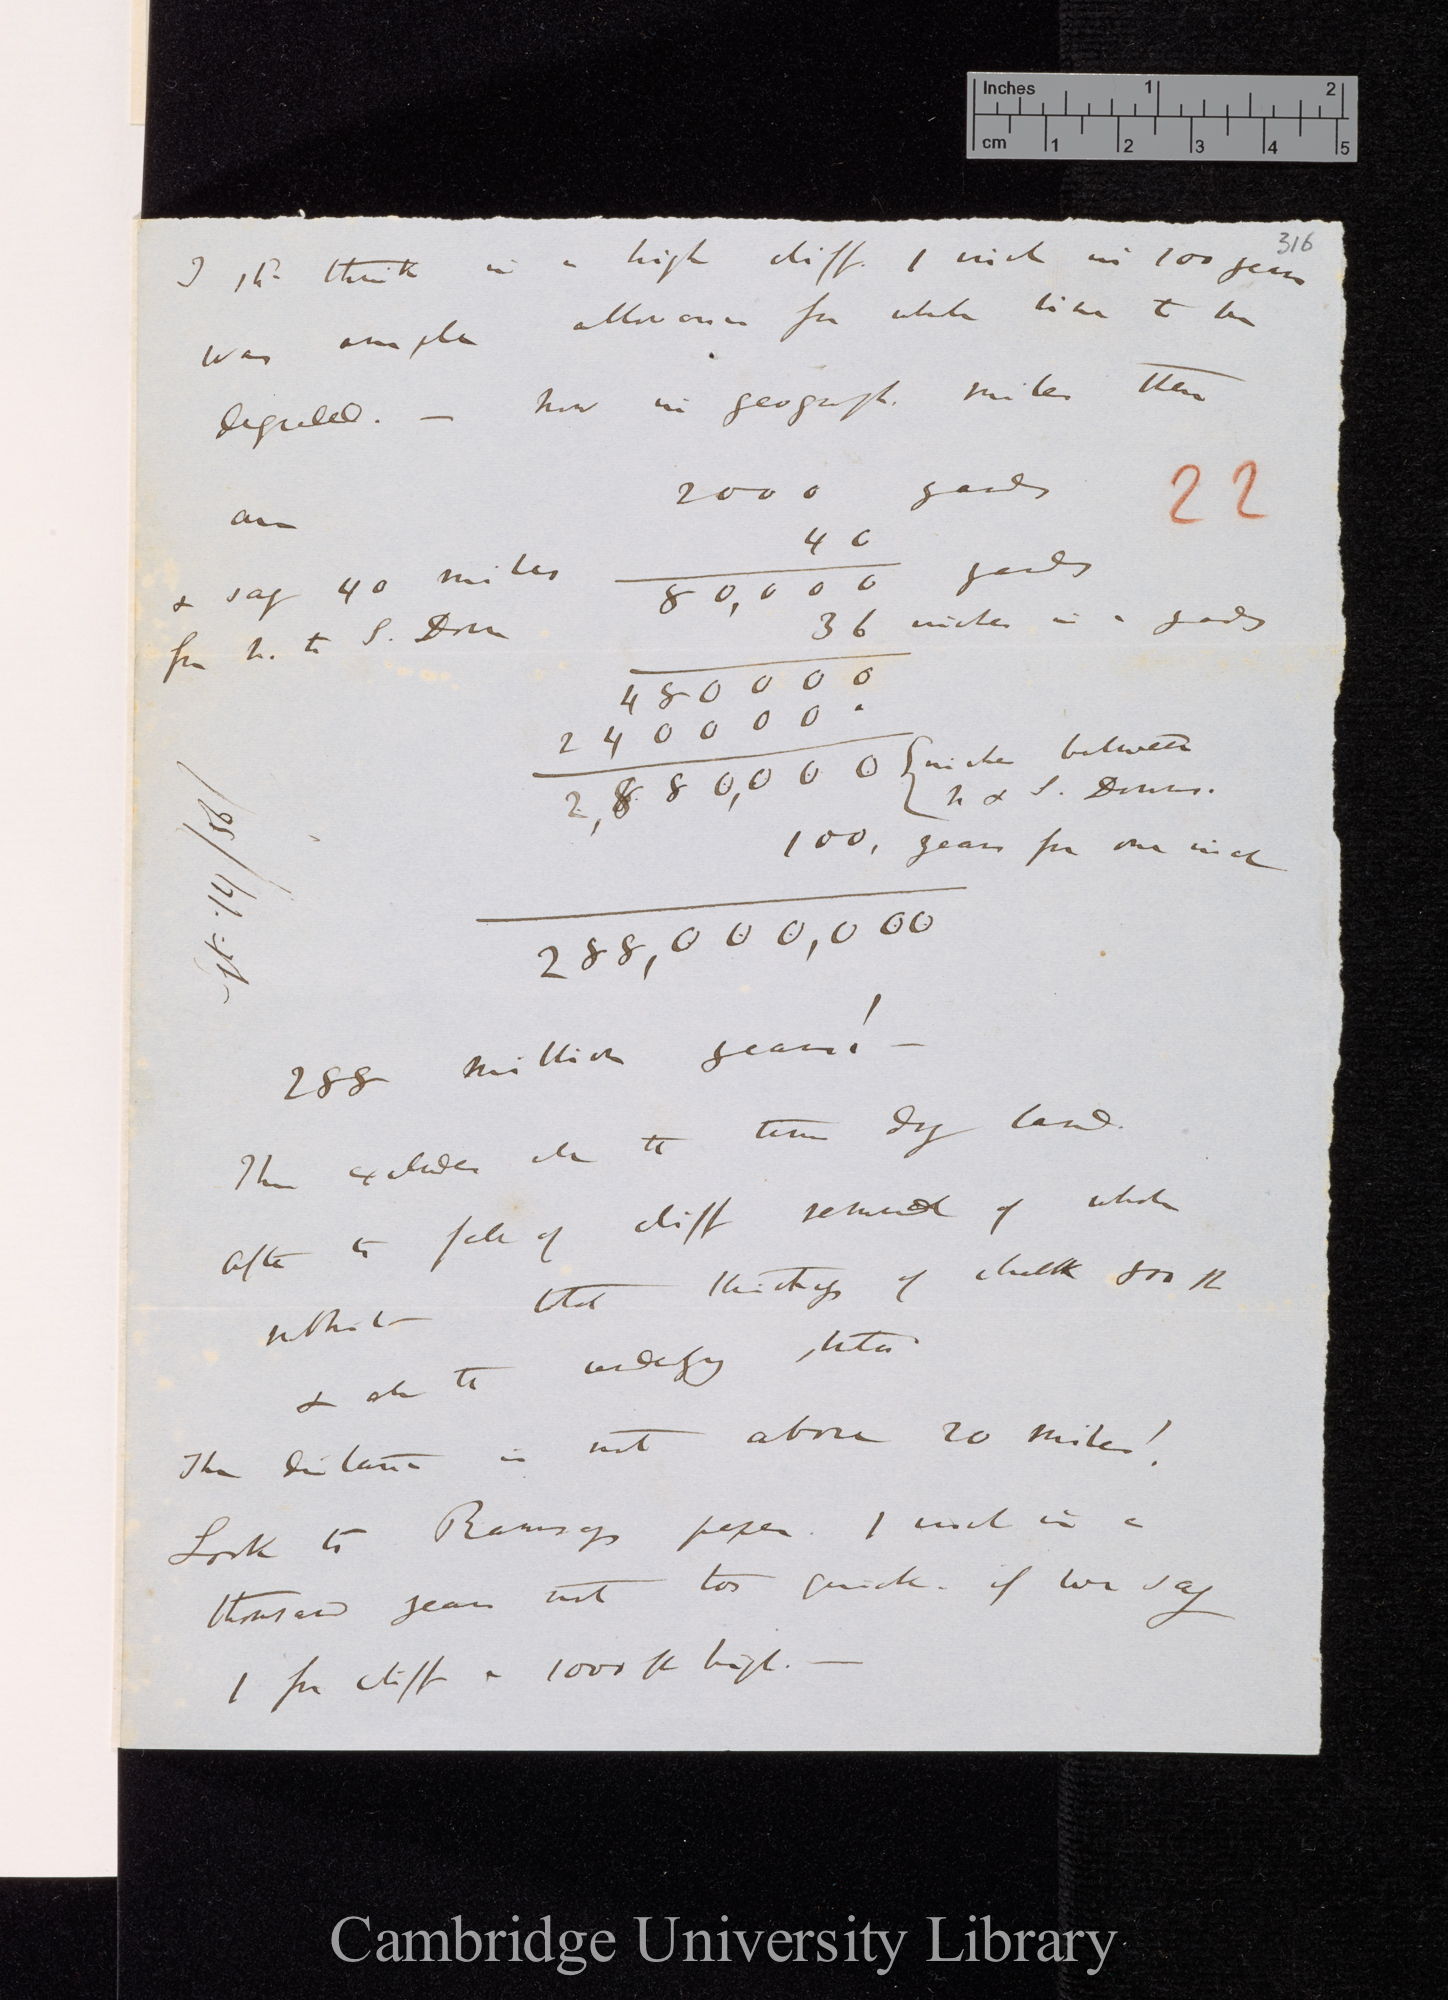 Inches 1 2
cm 1 2 3 4 5
316
I shd. think in a high cliff. 1 inch in 100 years
was ample allowance for whole line to be
degraded. — now in geograph. miles there
are 2000 yards
22
40
& say 40 miles 80,000 yards
for N. to S. Down 36 inches in a yards
480000
240000
2,880,000 inches between
N & S. Downs.
100, years for one inch
288,000,000
288 million years! —
This excludes all the time dry land.
After the fall of cliff removal of whole
thickness of chalk 800 ft
& all the underlying strata
The distance is not above 20 miles!
Look to Ramsays paper. 1 inch in a
thousand years not too quick. if we say
1 for cliff a 1000 ft high. —
14/56/
Cambridge University Library